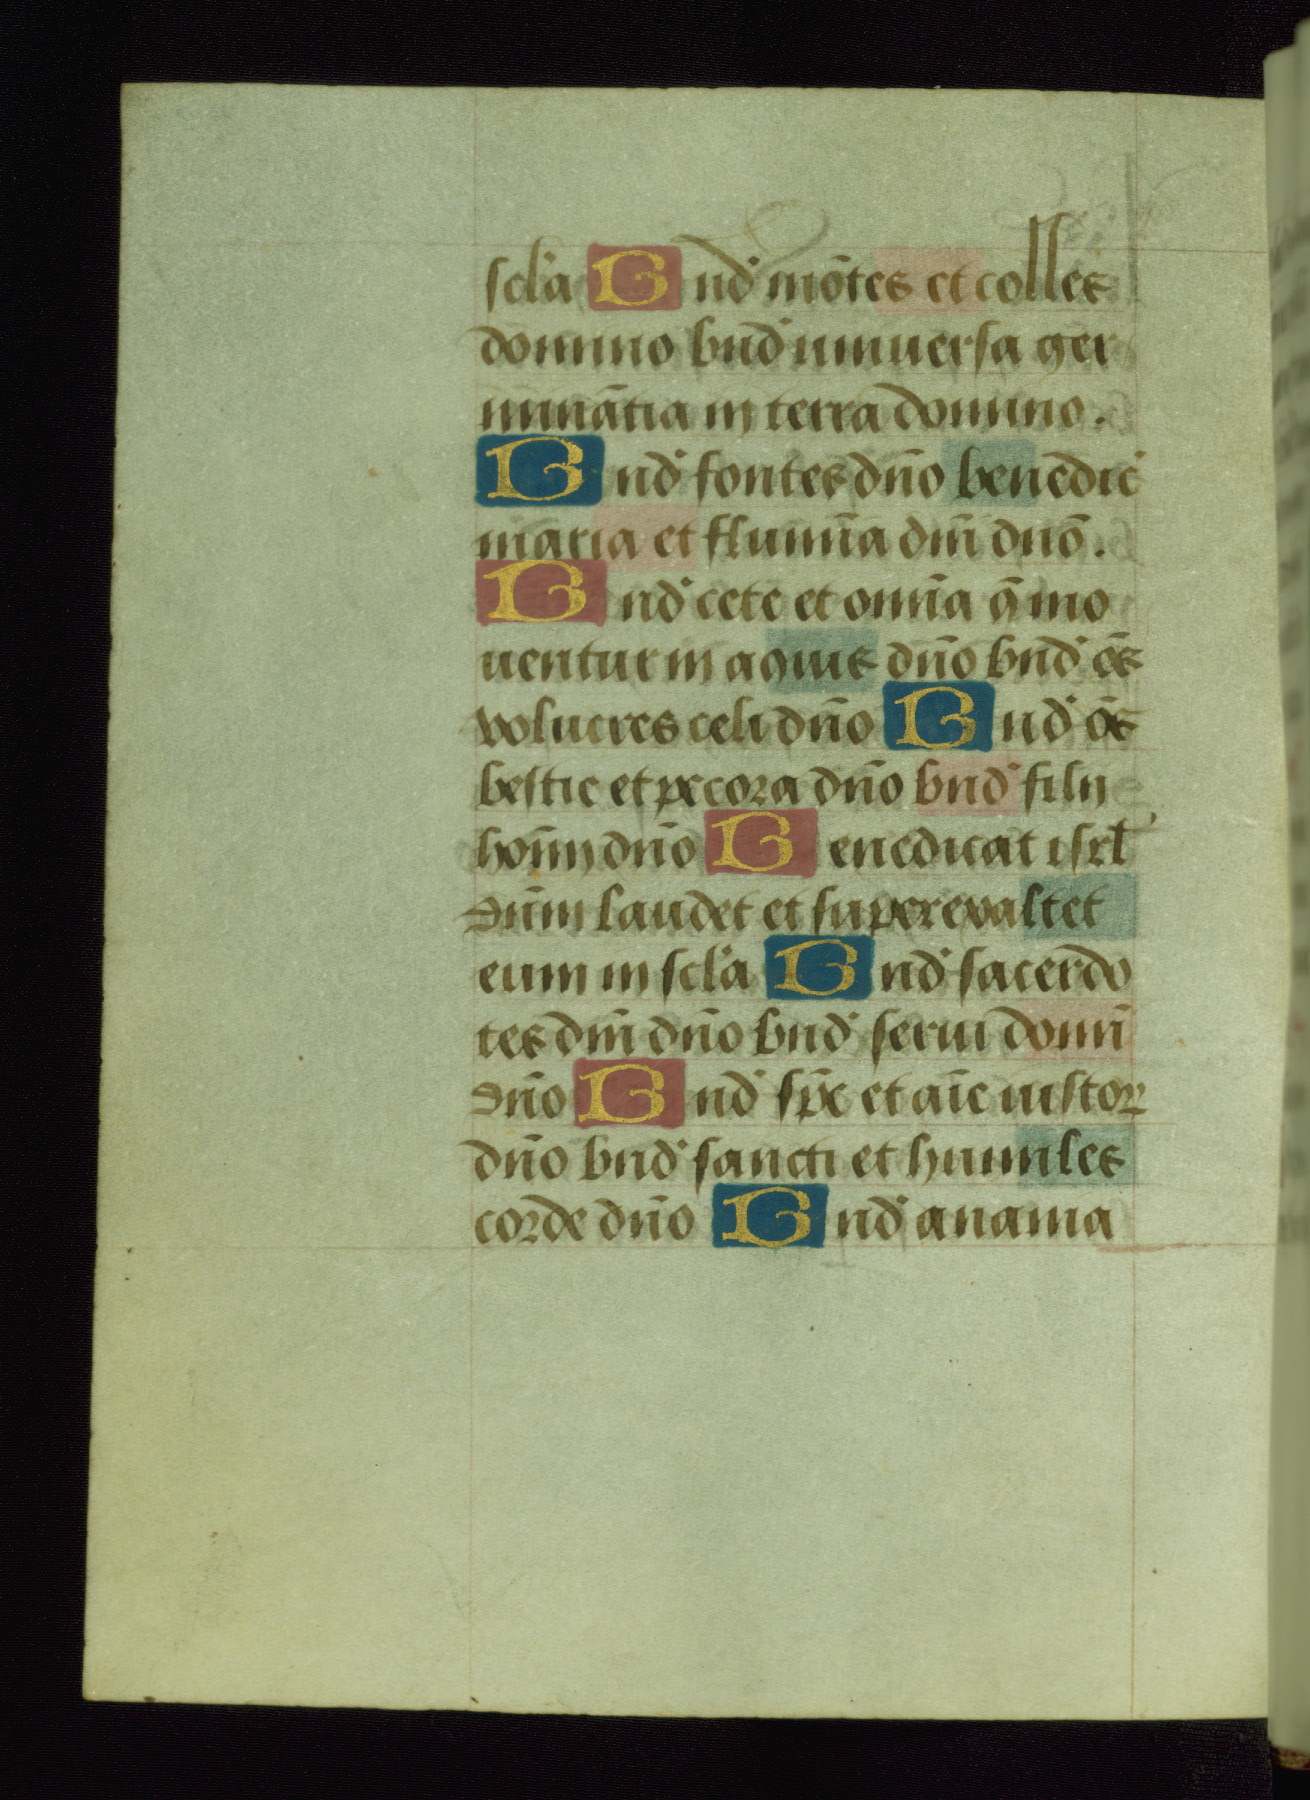 scl'a Bnd' mōtes et colles
domino bnd' uniuersa ger
minātia in terra domino.
Bnd' fontes dn̄o benedic̄
maria et flumīa dm̄ dnō.
Bnd' cete et omīa q̄ mo
uentur in aquis dn̄o bnd' ōs
volucres celi dn̄o Bnd' ōs
bestie et pecora dn̄o bnd' filii
hoīm dn̄o Benedicat isrl'
dn̄m laudet et superexaltet
eum in scl'a Bnd' sacerdo
tes dm̄ dn̄o bnd' serui domī
dn̄o Bnd' sp̄c et aīe iustoꝝ
dn̄o bnd' sancti et humiles
corde dn̄o Bnd' anania